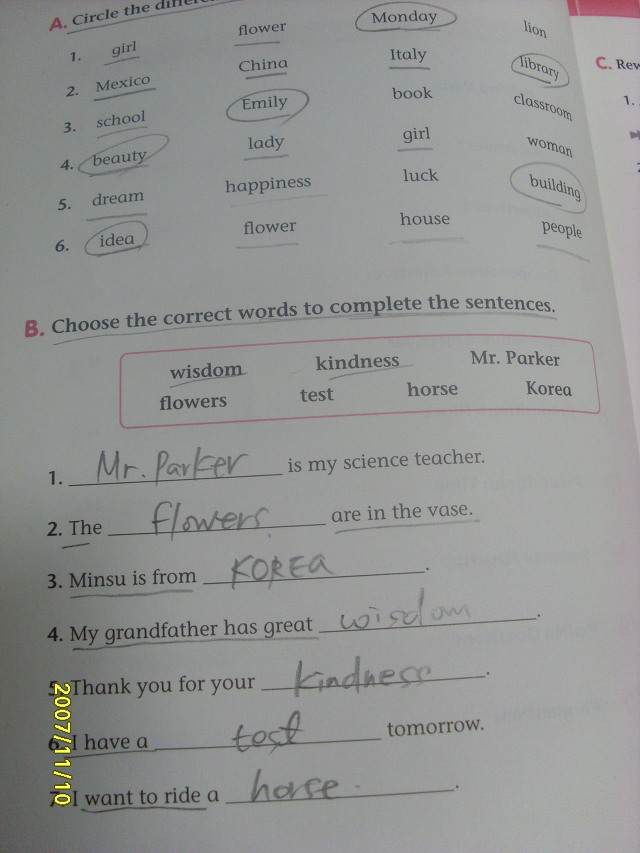 A. Circle the
1. girl flower Monday lion
2. Mexico China Italy library
3. school Emily book classroom
4. beauty lady girl woman
5. dream happiness luck building
6. idea flower house people
B. Choose the correct words to complete the sentences.
wisdom kindness Mr. Parker
flowers test horse Korea
1. Mr. Parker is my science teacher.
2. The flowers are in the vase.
3. Minsu is from KOREA.
4. My grandfather has great wisdom.
5. Thank you for your kindness.
6. I have a test tomorrow.
7. I want to ride a horse.
C. Rew
1.
2007/11/10